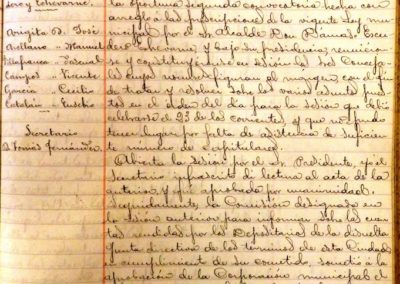 Lero y Echevarne.
Arigita D. José
Arellano " Manuel
Villafranca " Pascual
Campos " Vicente
García " Cecilio
Catalán " Eusebio
Secretario
D. Tomás Fernández
la oportuna segunda convocatoria hecha con
arreglo á las prescripciones de la vigente Ley muni-
cipal por el Sr. Alcalde Don Ramas Escu
dero Echevarne, y bajo su presidencia, reunieron
se y constituyéronse en sesión los Sres Conceja
les cuyos nombres figuran al margen con el fin
de tratar y resolver sobre los varios asuntos pues
tos en el orden del día para la sesión que debió
celebrarse el 23 de los corrientes y que no pudo
tener lugar por falta de asistencia de suficien
te número de capitulares.
Abierta la sesión por el Sr. Presidente, yo el
Secretario infrascrito dí lectura al acta de la
anterior y fué aprobada por unanimidad.
Seguidamente, la Comisión designada en
la sesión anterior para informar sobre las cuen
tas rendidas por los Depositarios de la disuelta
Junta directiva de los términos de esta Ciudad
en cumplimiento de su cometido, sometió á la
aprobación de la Corporación municipal el